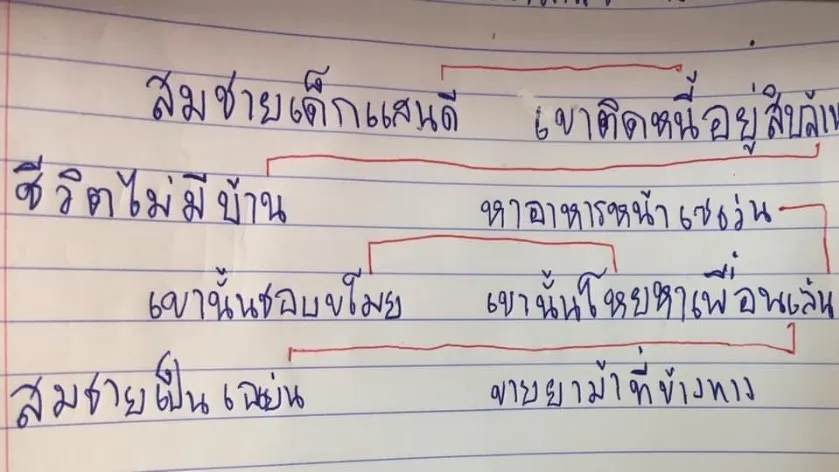 สมชายเด็กแสนดี เขาติดหนี้อยู่สิบล้าน
ชีวิตไม่มีบ้าน หาอาหารหน้าเซเว่น
เขานั้นชอบขโมย เขานั้นโหยหาเพื่อนเล่น
สมชายเป็นเฉย่น ขายยาม้าที่ข้างทาง